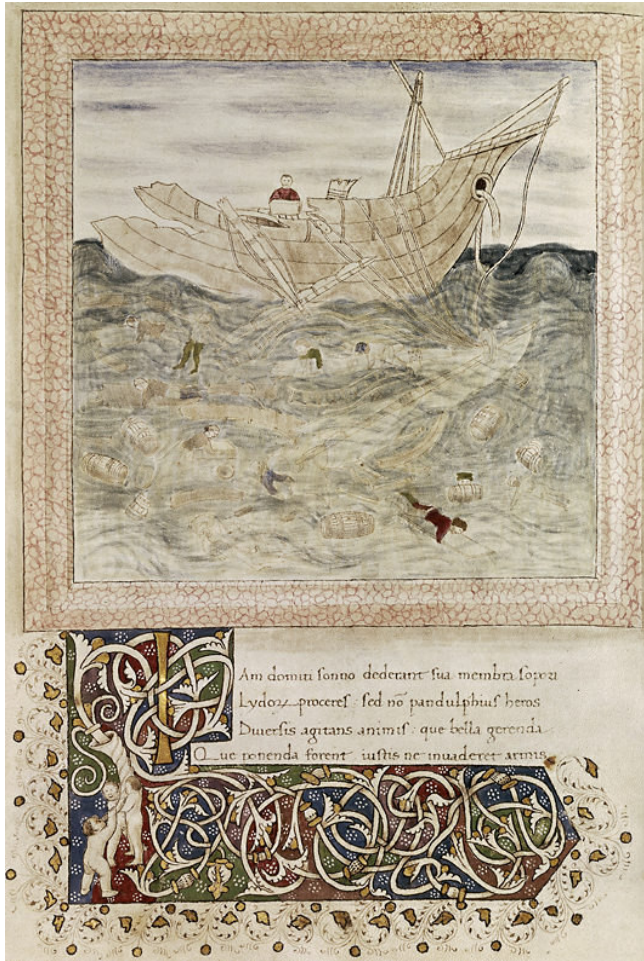 IAm domiti sonno dederant sua membra sopori
Lydoꝝ proceres: sed nō pandulphius heros
Diversis agitans animis: que bella gerenda
Que ponenda forent iustis ne invaderet armis